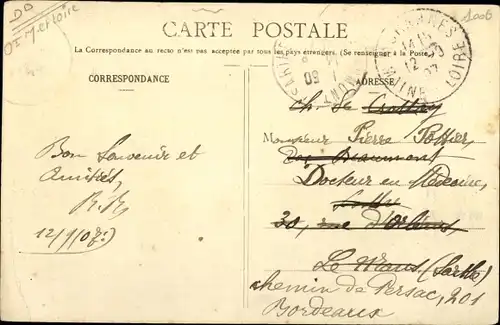 CARTE POSTALE
La Correspondance au recto n'est pas acceptée par tous les pays étrangers. (Se renseigner à la Poste.)
CORRESPONDANCE
ADRESSE
Bon Souvenir et
Amitiés,
12/9/07
Ch. de
Monsieur Pierre Pottier
Docteur en Médecine,
30, rue d'Orléans
Le Mans (Sarthe)
chemin de Persac, 201
Bordeaux